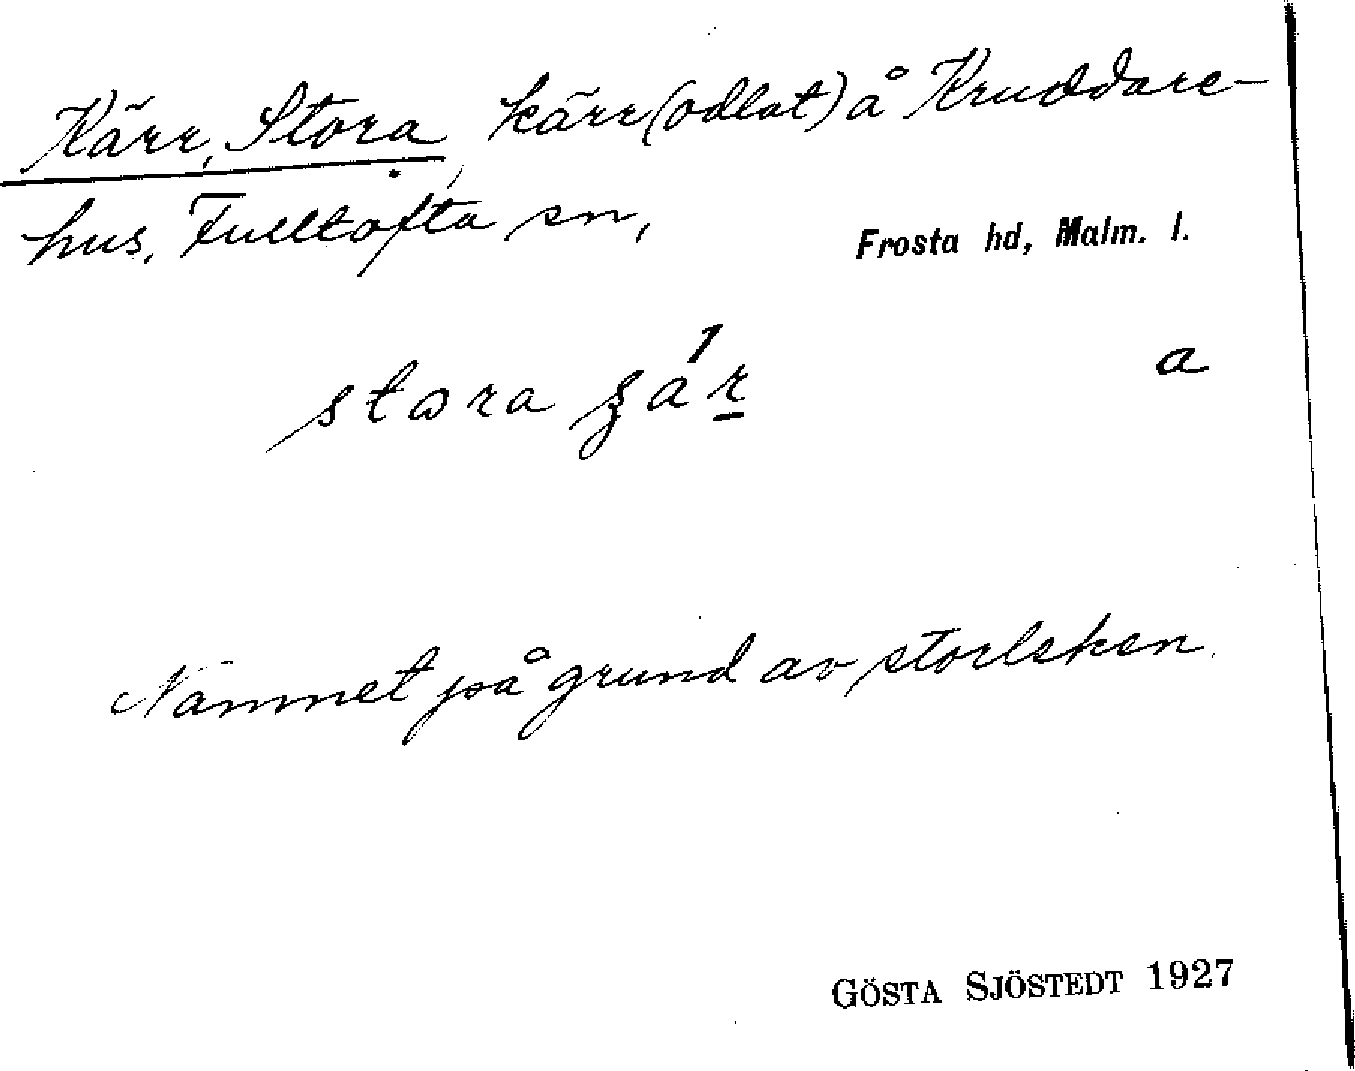 Kärr, Stora, kärr (odlat) å Kruddare-
hus, Fulltofta sn, Frosta hd, Malm. l.
a
Namnet på grund av storleken.
GÖSTA SJÖSTEDT 1927